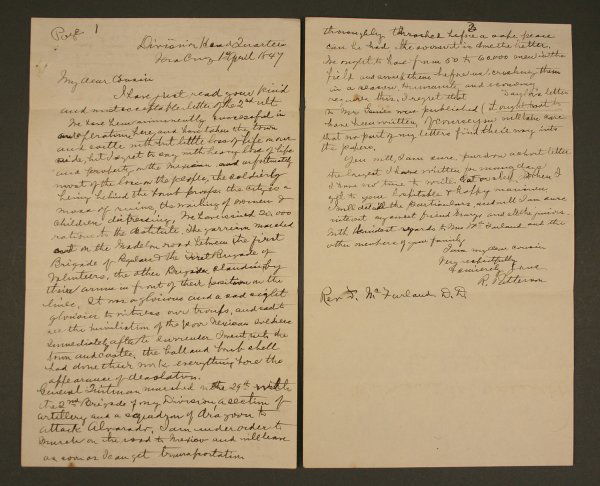 Page 1
Division Head Quarters
Vera Cruz 1st April 1847
My dear Cousin
I have just read your kind
and most acceptable letter of the 2nd ult
We have been eminently successful in
our operations here, and have taken the town
and castle with but little loss of life on our
side, but I regret to say with heavy loss of life
and property on the Mexican and unfortunately
most of the loss on the people, the soldiery
being behind the bomb proofs the City is a
mass of ruins, the wailing of women &
children distressing. We have issued 20,000
rations to the destitute. The garrison marched
out on the road between the first
Brigade of Regulars & the First Brigade of
Volunteers, the other Brigades standing by
their arms in front of their position on the
lines. It was a glorious and a sad sight
glorious to witness our troops, and sad to
see the humiliation of the poor Mexican soldiers
immediately after the surrender I went into the
town and castle, the ball and bomb shell
had done their work everything bore the
appearance of desolation.
General Quitman marched on the 29th with
the 2nd Brigade of my Division, a section of
artillery and a squadron of dragoons to
attack Alvarado, I am under order to
march on the road to Mexico and will leave
as soon as I can get transportation
2
thoroughly thrashed before a safe peace
can be had the sooner it is done the better,
We ought to have from 50 to 60000 men in the
field and sweep them before us, crushing them
in a season, humanity and economy
require this, I regret that letter
to Mr was published (it ought not to
have been written, of course you will take care
that no part of my letters find their way into
the papers.
You will, I am sure, pardon a short letter
the longest I have written for many days
I have no time to write but when I
get to your hospitable & happy mansion
I will detail the particulars, and will I am sure
interest my good friend George and all the juniors.
With kindest regards to Mrs McFarland and the
other members of your family
I am my dear cousin
Very respectfully
& sincerely yours
R. Patterson
Rev. F. McFarland D.D